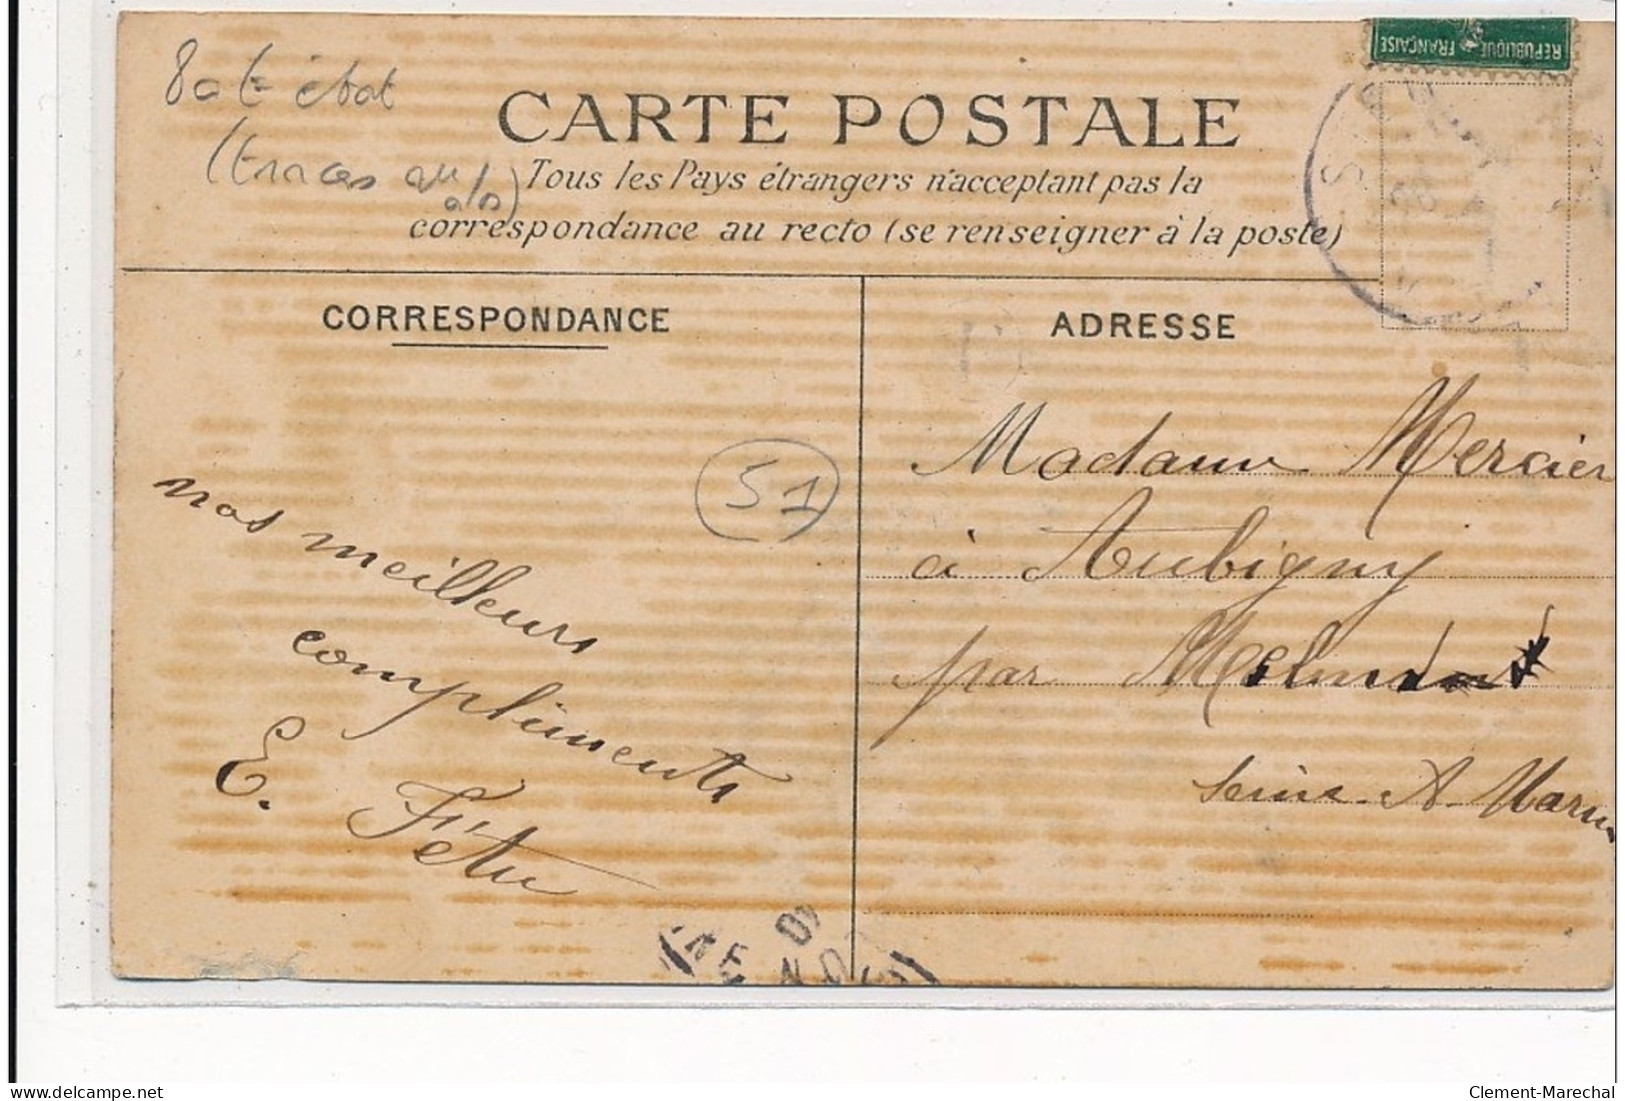 état
(traces au
CARTE POSTALE
Tous les Pays étrangers n'acceptant pas la
correspondance au recto (se renseigner à la poste)
REPUBLIQUE FRANÇAISE
CORRESPONDANCE
ADRESSE
51
nos meilleurs
compliments
E. Fétu
Madame Mercier
à Aubigny
par Melun
Seine-A-Marne
Clement-Marechal